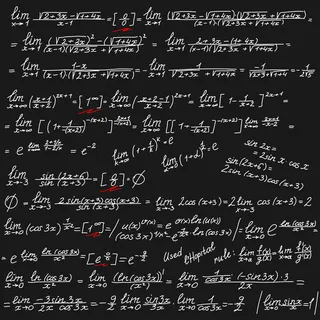 lim x→1 √2+3x − √1+4x / x−1 = [0/0] = lim x→1 (√2+3x − √1+4x)(√2+3x + √1+4x) / (x−1)(√2+3x + √1+4x) =
= lim x→1 (√2+3x)² − (√1+4x)² / (x−1)(√2+3x + √1+4x) = lim x→1 2+3x−(1+4x) / (x−1)(√2+3x + √1+4x) =
= lim x→1 1−x / (x−1)(√2+3x + √1+4x) = − lim x→1 1 / √2+3x + √1+4x = − 1 / √3+2 + √1+4 = − 1 / 2√5
lim x→∞ (x+1 / x+2)^2x+1 = [1^∞] = lim x→∞ (x+2−1 / x+2)^2x+1 = lim x→∞ [1 − 1 / x+2]^2x+1 =
= lim x→∞ [(1+ 1 / −(x+2))^−(x+2)] = lim x→∞ [(1+ 1 / −(x+2))^−(x+2)] =
= e = e^−2 lim x→∞ (1+ = e
lim = e
sin 2x =
= 2sin x cos x
sin(2x+6) =
2sin(x+3)cos(x+3)
lim x→−3 sin(2x+6) / sin(x+3) = [0/0] = Ø
Ø = lim x→−3 2sin(x+3)cos(x+3) / sin(x+3) = lim x→−3 2cos(x+3) = 2 lim x→−3 cos(x+3) =
lim x→0 (cos 3x)^1/x² = [1^∞] = / u(x)^v(x) = e^v(x)ln(u(x)) / = lim x→0 e^ln(cos 3x)/x² =
= e^lim x→0 ln(cos 3x)/x² = [e^0/0] = e^−9/2 Used rule: lim f(x)/g(x) = lim f'(x)/g'(x)
lim x→0 ln(cos 3x) / x² = lim x→0 (ln(cos 3x))' / (x²)' = lim x→0 1/cos 3x · (−sin 3x)·3 / 2x =
= lim x→0 −3sin 3x / 2x cos 3x = −9/2 lim x→0 sin 3x / 3x · lim x→0 1 / cos 3x = −9/2 | lim x→0 sin x / x = 1 |